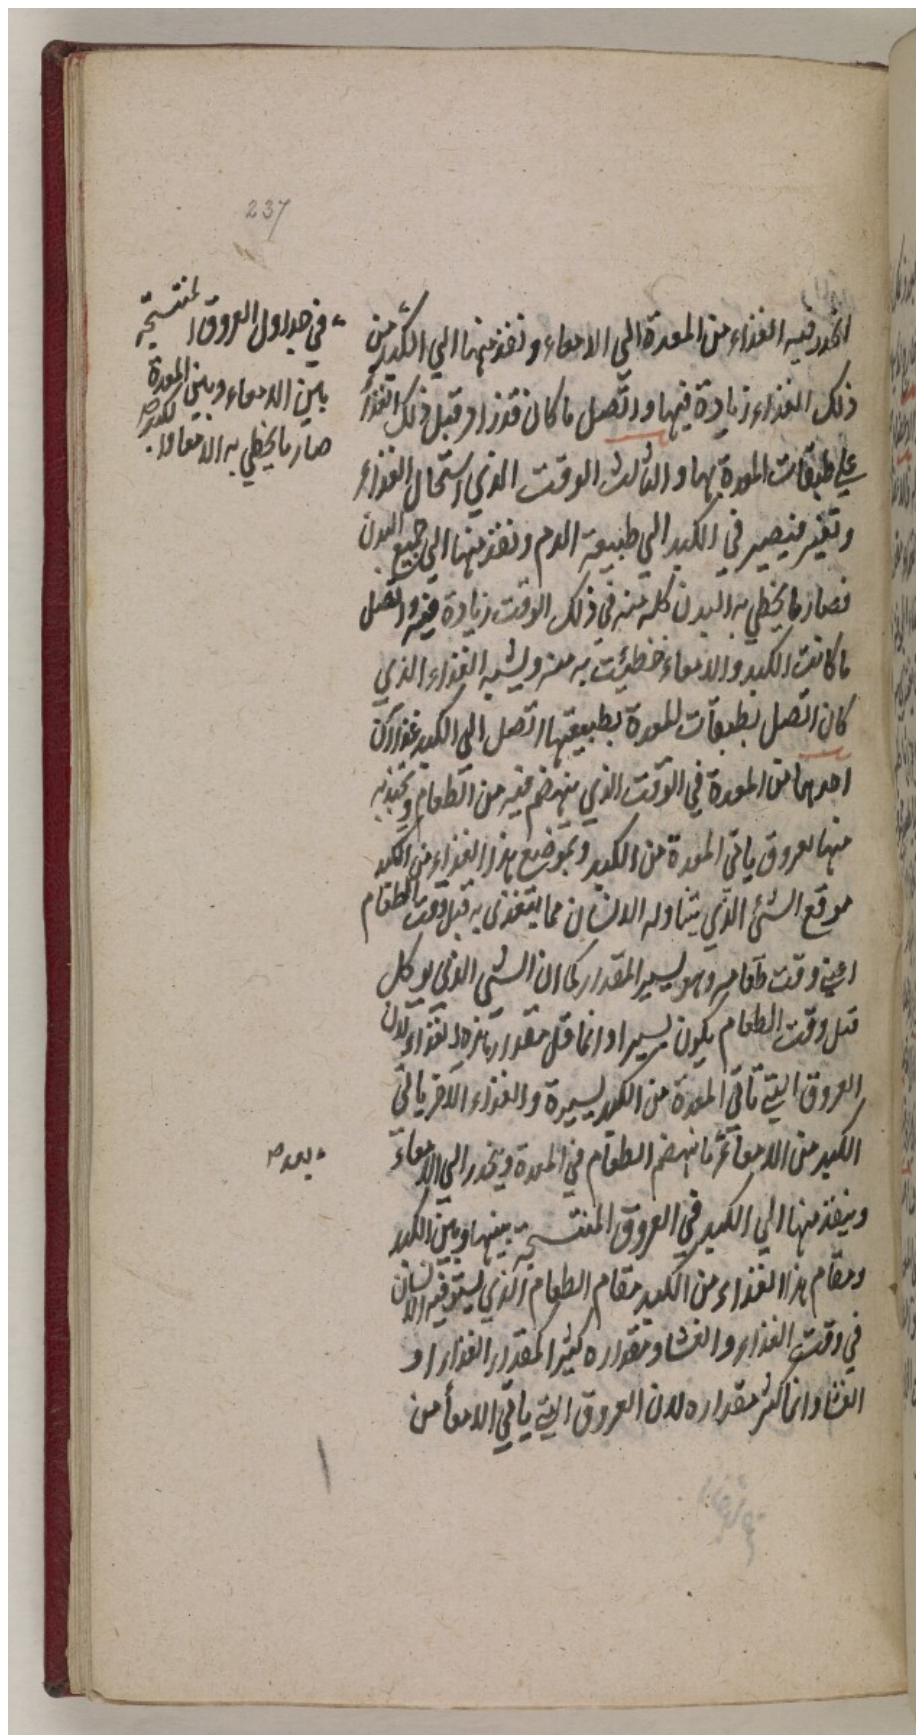 237
انحدر فيه الغذاء من المعدة الى الامعاء ونفذ منها الي الكبد من
ذلك الغذاء زيادة فيها واتصل ما كان قد زاد قبل ذلك الغذاء
علي طبقات المعدة بها والثالث الوقت الذي استحال الغذاء
وتغير فيصير في الكبد الي طبيعة الدم ونفذ منها الي جميع البدن
فصار ما يخطي به البدن كله منه في ذلك الوقت زيادة فيه واتصل
ما كانت الكبد والامعاء خطيئت به منه ويشبه الغذاء الذي
كان اتصل بطبقات للمعدة بطبيعتها اتصل الي الكبد غذاآن
احدهما من المعدة في الوقت الذي ينهضم فيه من الطعام ويجذبه
منها لعروق ياتي المعدة من الكبد وبموضع هذا الغذاء من الكبد
موقع الشئ الذي يتناوله الانسان مما يتغذى به قبل وقت الطعام
اعني وقت طعامه وهو يسير المقدار كما ان الشي الذي يوكل
قبل وقت الطعام يكون يسيرا وانما قل مقدار هذه الغذاء لان
العروق التي تاتي المعدة من الكبد يسيرة والغذاء الاخر ياتي
الكبد من الامعاء ما انهضم الطعام في المعدة وينحدر الي الامعاء
وينفذ منها الي الكبد في العروق المنتسجة بينها وبين الكبد
ومقام هذا الغذاء من الكبد مقام الطعام الذي يستوفيه الانسان
في وقت الغذاء والعشا ومقداره كثير كمقدار الغذاء او
العشا وانما كثر مقداره لان العروق التي ياتي الامعأ من
في جداول العروق المنتسجة
بين الامعاء وبين المعدة
الكبد صح
صار ما يخطي به الامعا وا
بعد صح